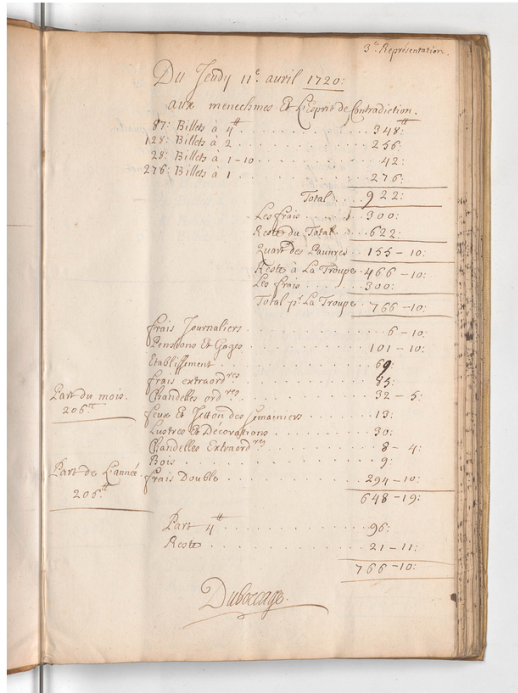 3e Représentation.
Du Jeudy 11e. avril 1720:
aux menechmes Et L'Esprit de Contradiction.
87: Billets à 4tt . . . 348:tt
128: Billets à 2 . . . 256:
28: Billets à 1-10 . . . 42:
276: Billets à 1 . . . 276:
Total . . . 922:
Les frais . . . 300:
Reste du Total . . . 622:
Quart des Pauvres . . . 155-10:
Reste à La Troupe . . . 466-10:
Les frais . . . 300:
Total pr. La Troupe . . . 766-10:
frais Journaliers . . . 6-10:
Pensions Et Gages . . . 101-10:
Etablissement . . . 69:
frais extraordres . . . 85:
Part du mois.
206.tt
Chandelles ordres . . . 32-5:
feux Et Jetton des Semainiers . . . 13:
Lustres Et Décorations . . . 30:
Chandelles Extraordres . . . 8-4:
Bois . . . 9:
Part de L'année
206.tt
frais Double . . . 294-10:
648-19:
Part 4tt . . . 96:
Reste . . . 21-11:
766-10:
Duboccage.